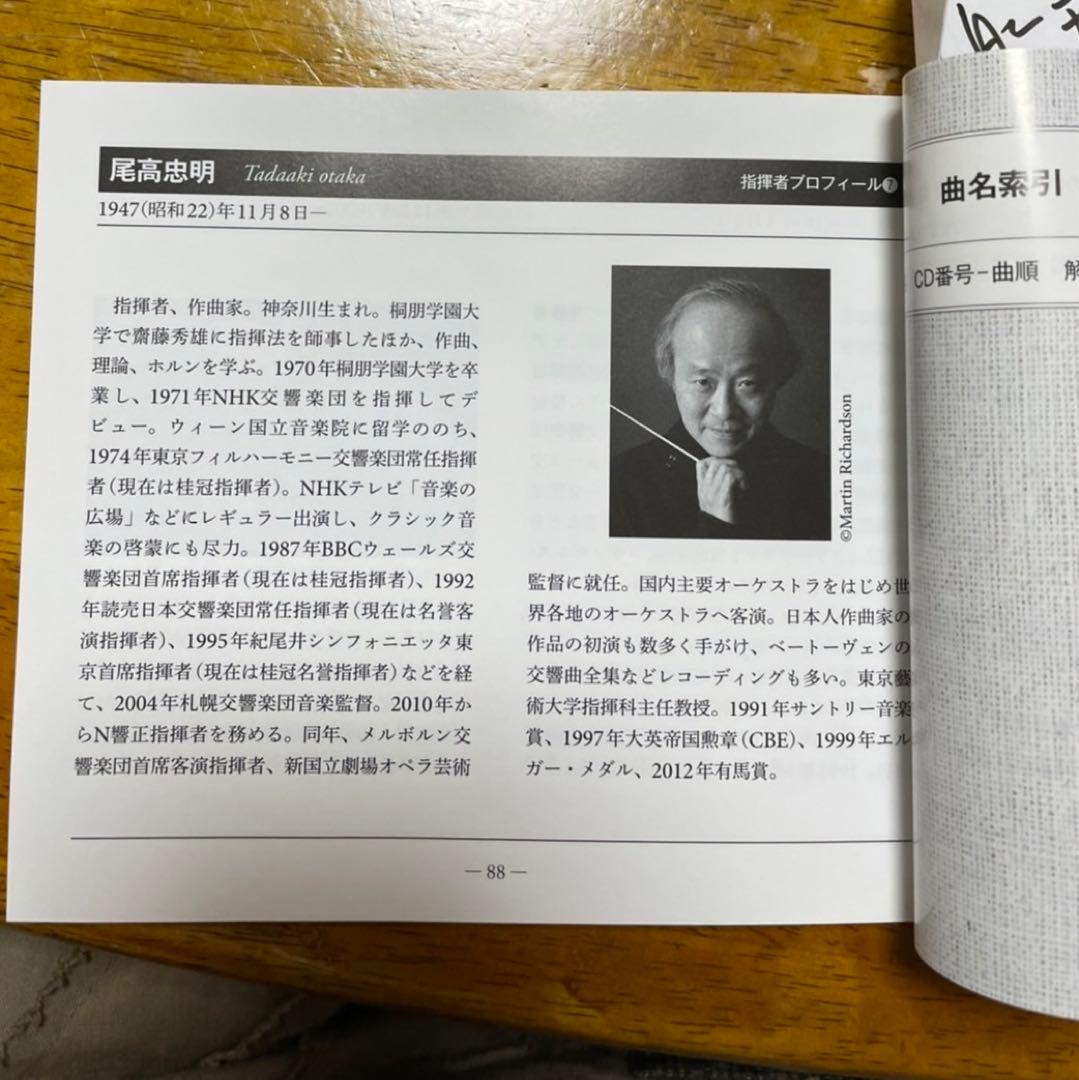 尾高忠明 Tadaaki otaka 指揮者プロフィール❼
1947(昭和22)年11月8日—
指揮者、作曲家。神奈川生まれ。桐朋学園大
学で齋藤秀雄に指揮法を師事したほか、作曲、
理論、ホルンを学ぶ。1970年桐朋学園大学を卒
業し、1971年NHK交響楽団を指揮してデ
ビュー。ウィーン国立音楽院に留学ののち、
1974年東京フィルハーモニー交響楽団常任指揮
者(現在は桂冠指揮者)。NHKテレビ「音楽の
広場」などにレギュラー出演し、クラシック音
楽の啓蒙にも尽力。1987年BBCウェールズ交
響楽団首席指揮者(現在は桂冠指揮者)、1992
年読売日本交響楽団常任指揮者(現在は名誉客
演指揮者)、1995年紀尾井シンフォニエッタ東
京首席指揮者(現在は桂冠名誉指揮者)などを経
て、2004年札幌交響楽団音楽監督。2010年か
らN響正指揮者を務める。同年、メルボルン交
響楽団首席客演指揮者、新国立劇場オペラ芸術
©Martin Richardson
監督に就任。国内主要オーケストラをはじめ世
界各地のオーケストラへ客演。日本人作曲家の
作品の初演も数多く手がけ、ベートーヴェンの
交響曲全集などレコーディングも多い。東京藝
術大学指揮科主任教授。1991年サントリー音楽
賞、1997年大英帝国勲章(CBE)、1999年エル
ガー・メダル、2012年有馬賞。
— 88 —
曲名索引
CD番号-曲順 解